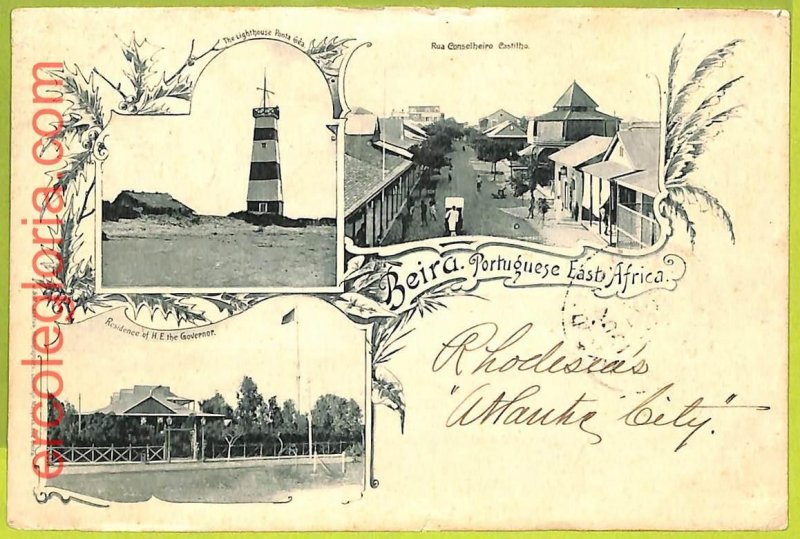 The Lighthouse Ponta Géa.
Rua Conselheiro Castilho.
Beira. Portuguese East Africa.
Residence of H.E. the Governor.
Rhodesia's
"Atlantic City".
ercolegloria.com